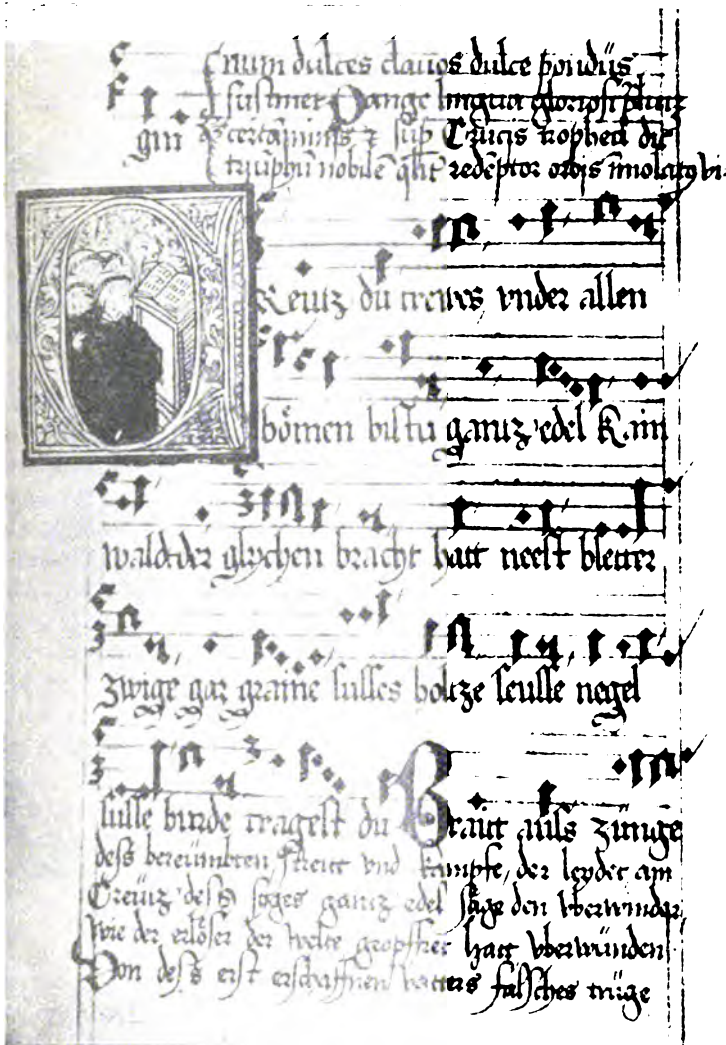 lignum dulces clauos dulce pondus
sustinet Pange lingua gloriosi
gin certaminis & sup Crucis tropheu dic
triuphu nobile qlit redeptor orbis imolatq vi
Kreutz du trewes vnder allen
bömen bistu gantz edel Kain
wald der glychen bracht hatt neest bletter
zwige gar grame susses holtze seusse negel
susse burde tragest du Braut auss zunge
dess bereümbten streitt vnd kampfe, der leydet am
Creütz dess syges gantz edel sage den vberwinder
wie der erlöser der welte geopffert hatt vberwunden
Von dess erst erschaffnen vatters falsches truge